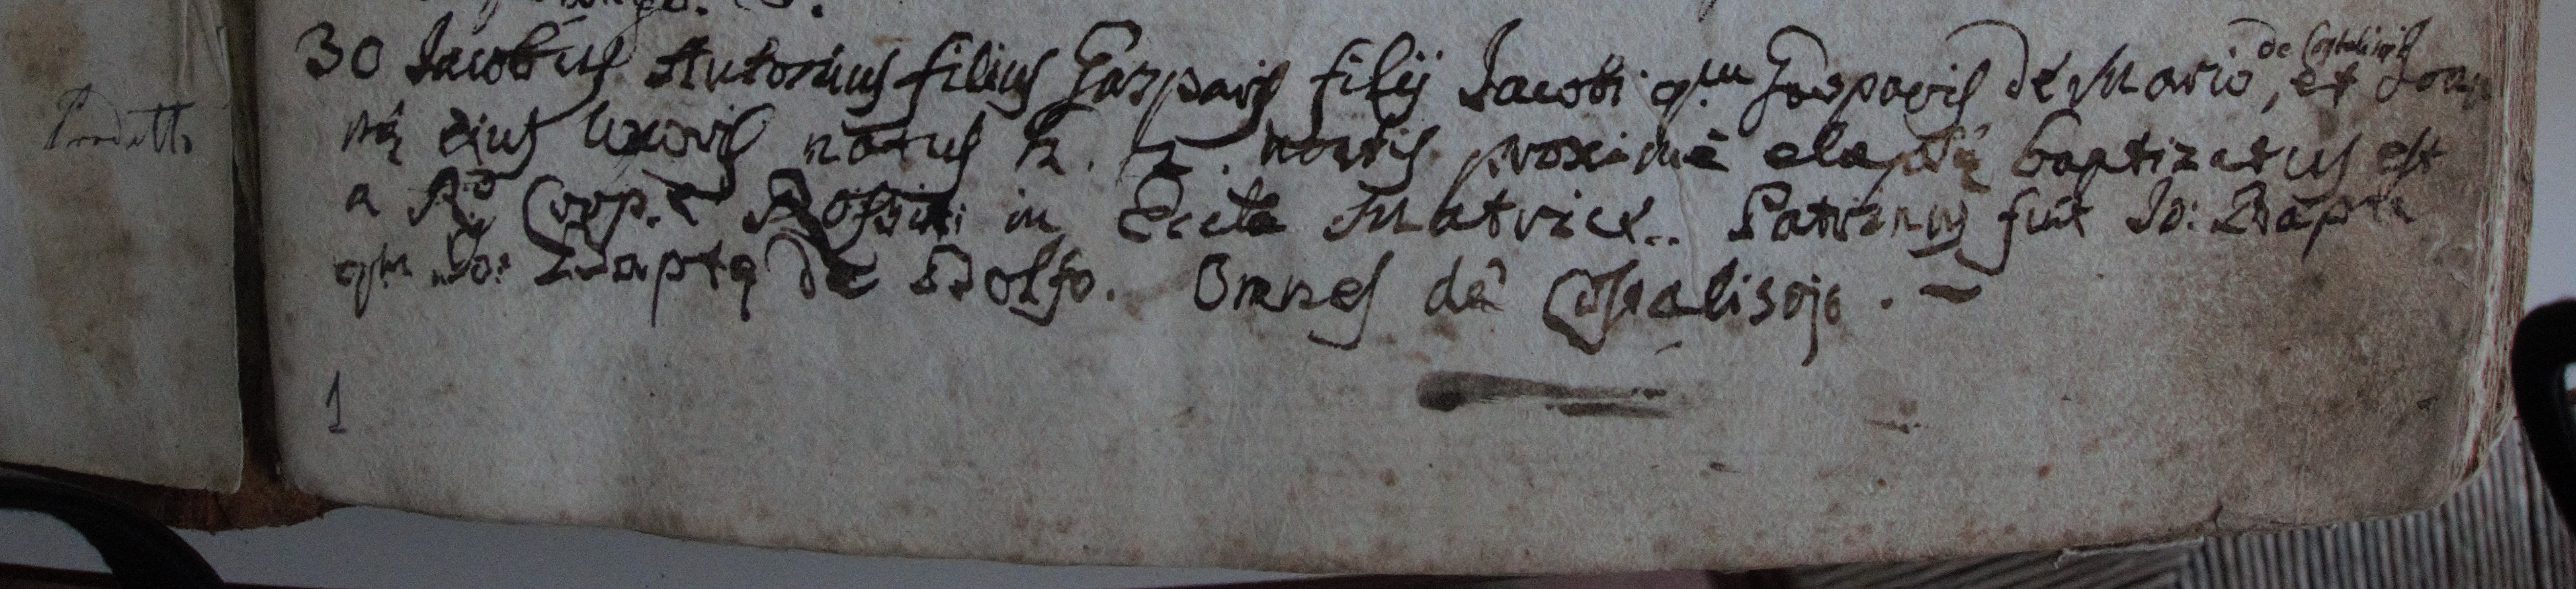 30 Jacobus Antonius filius Gasparis filij Jacobi qm Gasparis de Mario de Castalisoijs, et Joan
nę eius uxoris natus h. 2. noctis proximè elapsę baptizatus est
a Rdo Corp. in Eccla Matrice. Patrinus fuit Jo: Bapta
qm Jo: Baptę de Dolfo. Omnes de Costalisojo. –
1